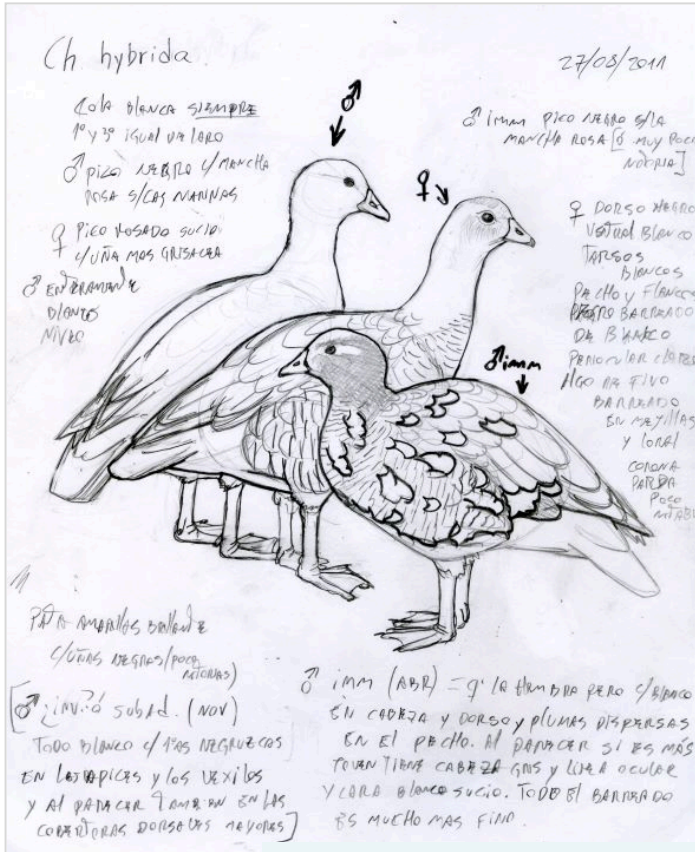 Ch hybrida
27/08/2011
COLA BLANCA SIEMPRE
1º y 2º IGUAL
♂ PICO NEGRO C/MANCHA
ROSA S/LAS NARINAS
♀ PICO ROSADO SUCIO
C/UÑA MAS GRISACEA
♂ ENTERAMENTE
BLANCO
NIVEO
♂
♀
♂ imm
♂ imm PICO NEGRO S/LA
MANCHA ROSA [ó MUY POCO
NOTORIA]
♀ DORSO NEGRO
VENTRAL BLANCO
TARSOS
BLANCOS
PECHO Y FLANCOS
NEGRO BARREADO
DE BLANCO
PERIOCULAR CLARO
ALGO DE FINO
BARREADO
EN MEJILLAS
Y LORAL
CORONA
PARDA
POCO
PATA AMARILLAS BRILLANTE
C/UÑAS NEGRAS (POCO
NOTORIAS)
[♂ ¿inv? ó subad. (NOV)
TODO BLANCO C/1ªAS NEGRUZCAS
EN LOS APICES Y LOS VEXILOS
Y AL PARECER TAMBIEN EN LAS
COBERTORAS DORSALES MAYORES]
♂ imm (ABR) = q' LA HEMBRA PERO C/BLANCO
EN CABEZA Y DORSO Y PLUMAS DISPERSAS
EN EL PECHO. AL PARECER SI ES MÁS
JOVEN TIENE CABEZA GRIS Y LINEA OCULAR
Y CARA BLANCO SUCIO. TODO EL BARREADO
ES MUCHO MAS FINO.